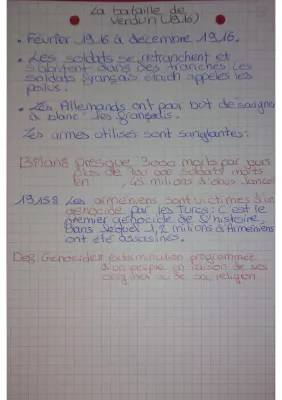 La bataille de
Verdun (1916)
• Février 1916 à decembre 1916.
• Les soldats se retranchent et
s'abritent dans des tranches. Les
soldats français étaient appelés les
poilus.
• Les Allemands ont pour but de saigné
à blanc les français.
Les armes utilisés sont sanglantes:
Bilan: presque 3000 morts par jours
plus de 700 000 soldats morts
en , 43 milions d'obus lancé
1915: Les arméniens sont victimes d'un
génocide par les Turcs: C'est le
premier génocide de l'histoire,
Dans lequel 1,2 milions d'Arméniens
ont été assasinés.
Def: Génocide: extermination programmée
d'un peuple en raison de ses
origines ou de sa religion